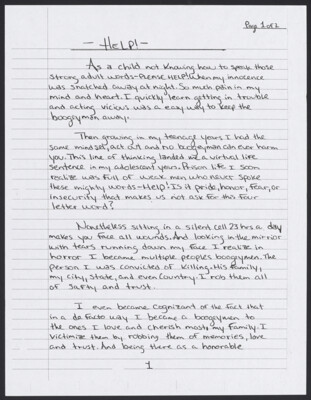 Page 1 of 2
- HELP! -
As a child not knowing how to speak those
strong adult words-PLEASE HELP! When my innocence
was snatched away at night. So much pain in my
mind and heart. I quickly learn getting in trouble
and acting vicious was a easy way to keep the
boogyman away.
Then growing in my teenage years I had the
same mindset, act out and no boogeyman can ever harm
you. This line of thinking landed me a virtual life
sentence in my adolescent years. Prison life I soon
realize was full of weak men who never spoke
these mighty words-Help! Is it pride, honor, fear, or
insecurity that makes us not ask for this four
letter word?
Nonetheless sitting in a silent cell 23 hrs a day
makes you face all wounds. And looking in the mirror
with tears running down my face I realize in
horror I became multiple peoples boogeymen. The
person I was convicted of killing. His family,
my city, state, and even country. I rob them all
of safty and trust.
I even became cognizant of the fact that
in a de facto way I became a boogeymen to
the ones I love and cherish most; my family. I
victimize them by robbing them of memories, love
and trust. And being there as a honorable
1